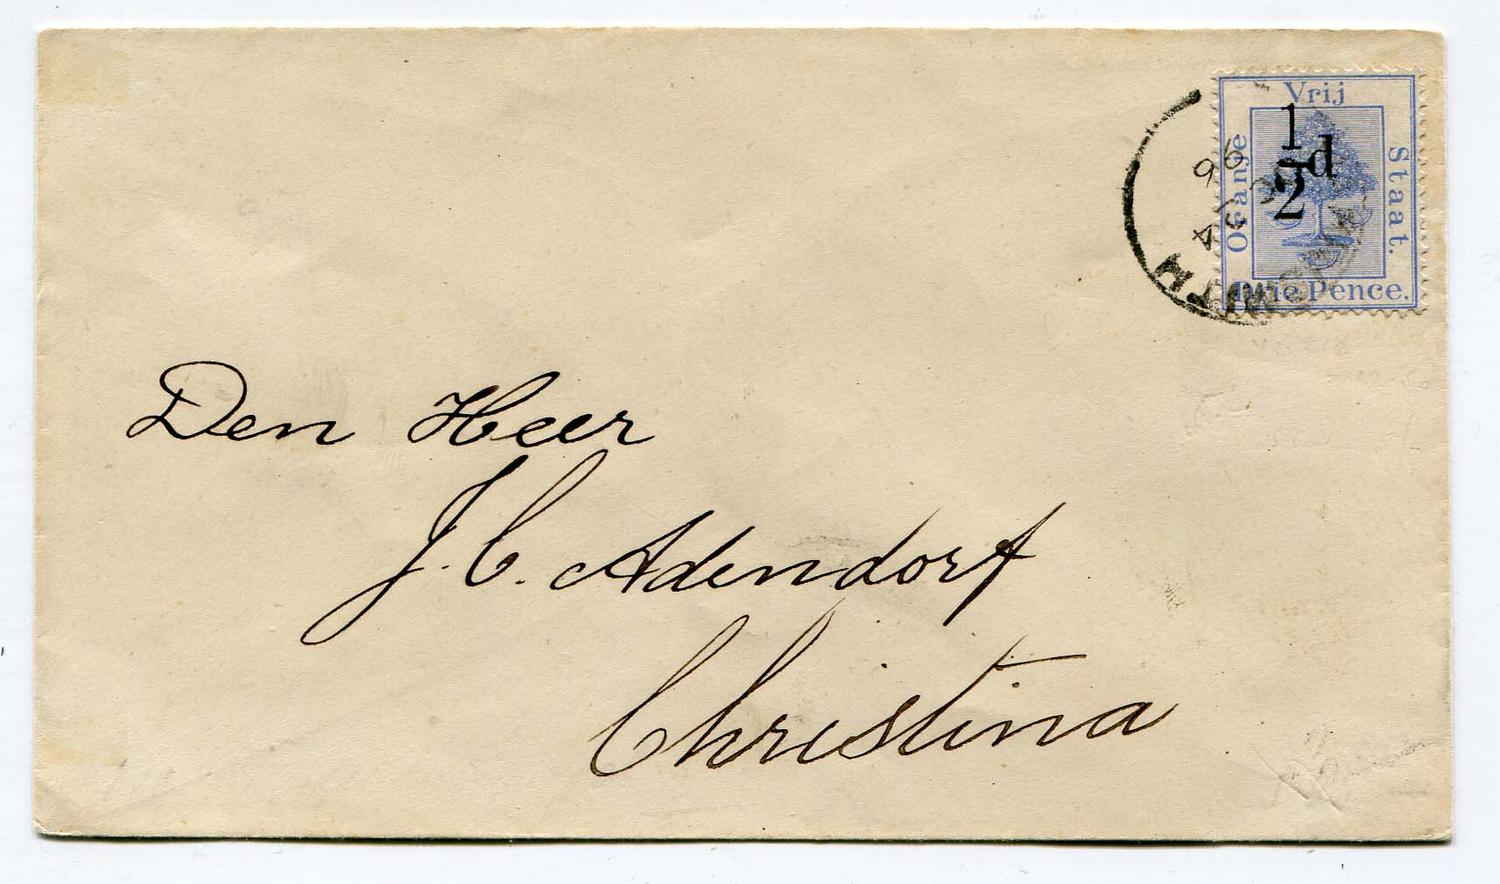 Vrij
Oranje
Staat.
1/2 d
Drie Pence.
96
24
Den Heer
J. C. Adendorf
Christina